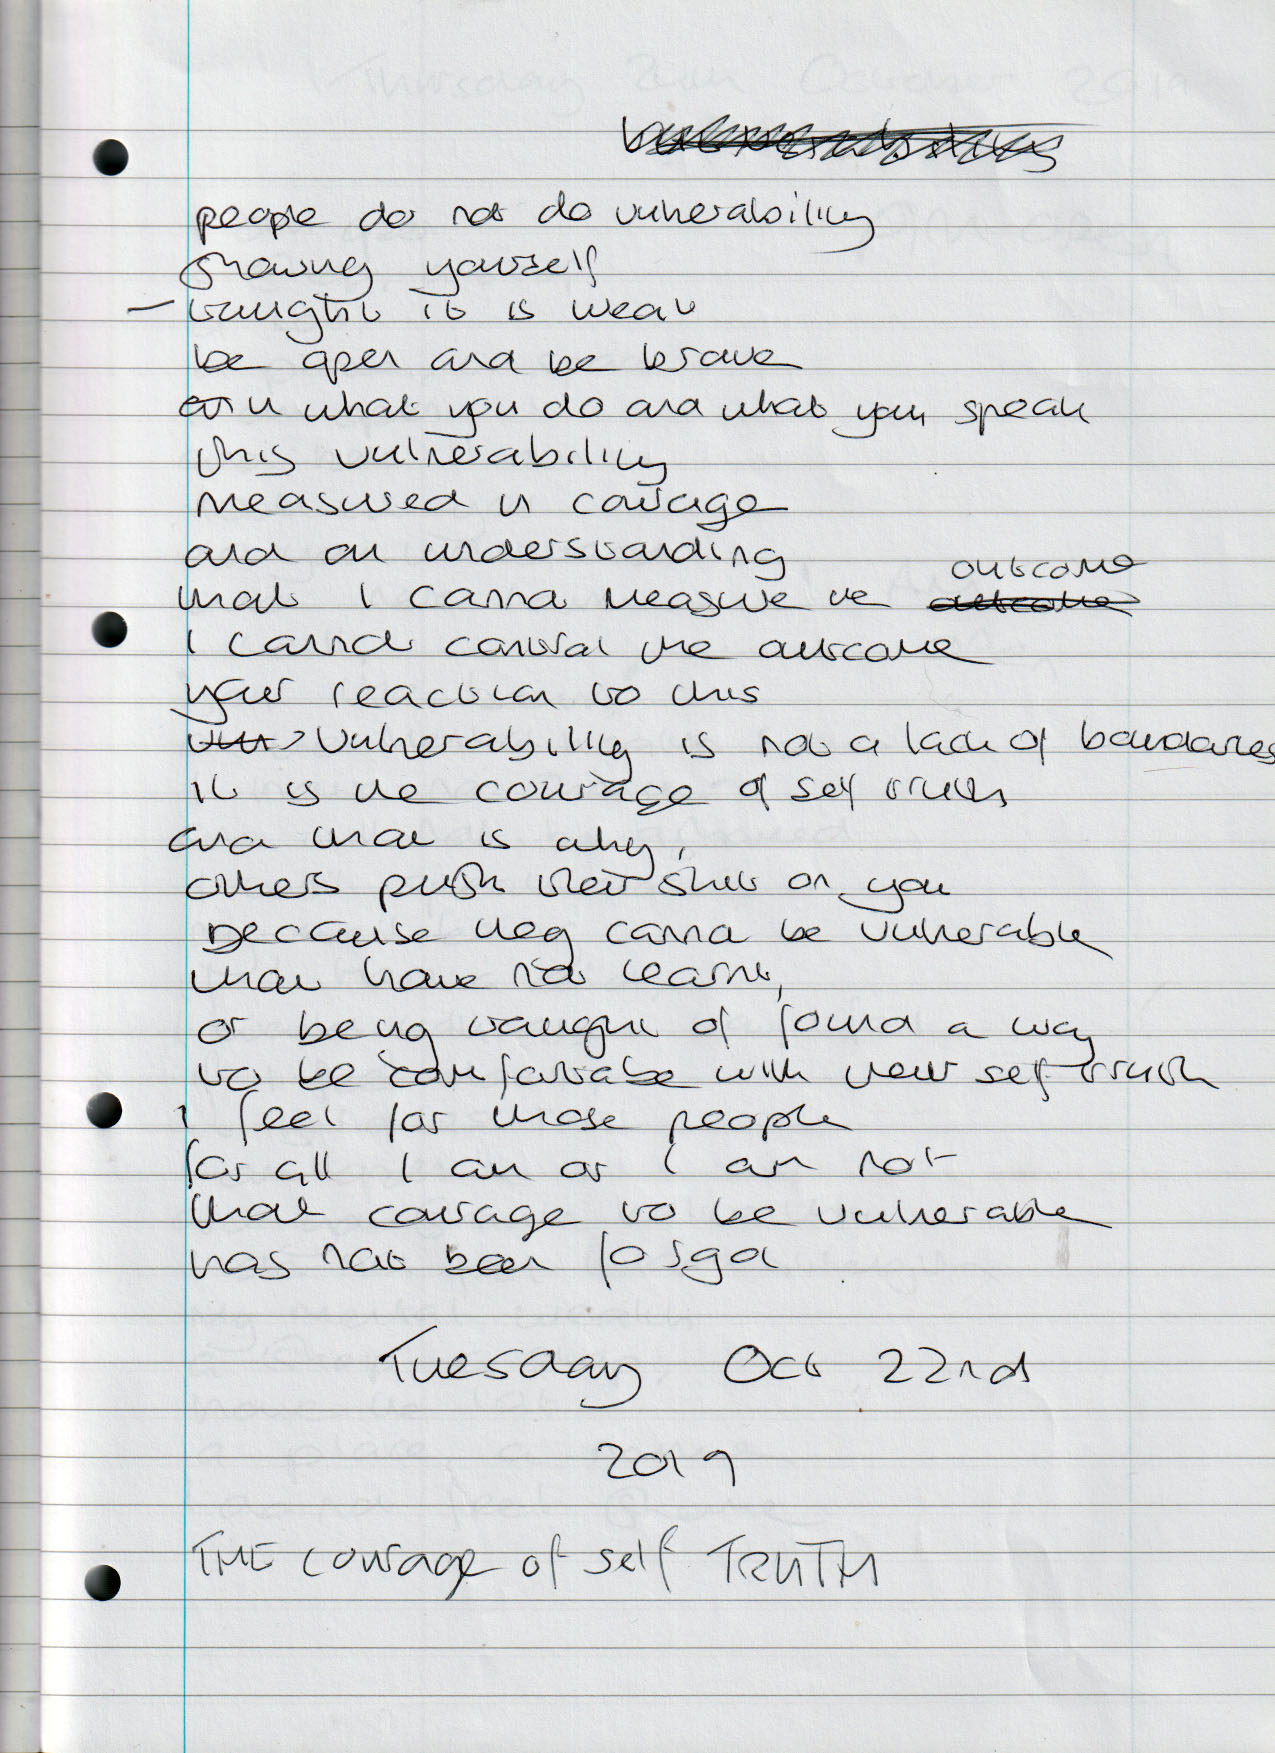 people do not do vulnerability
showing yourself
– taught it is weak
be open and be brave
in what you do and what you speak
this vulnerability
measured in courage
and an understanding
that I cannot measure the outcome
I cannot control the outcome
your reaction to this
vulnerability is not a lack of boundaries
it is the courage of self truth
and that is why,
others push their shit on you
because they cannot be vulnerable
that have not learnt,
or being taught of found a way
to be comfortable with their self truth
I feel for those people
for all I am or I am not
that courage to be vulnerable
has not been forgot
Tuesday Oct 22nd
2019
THE courage of self TRUTH